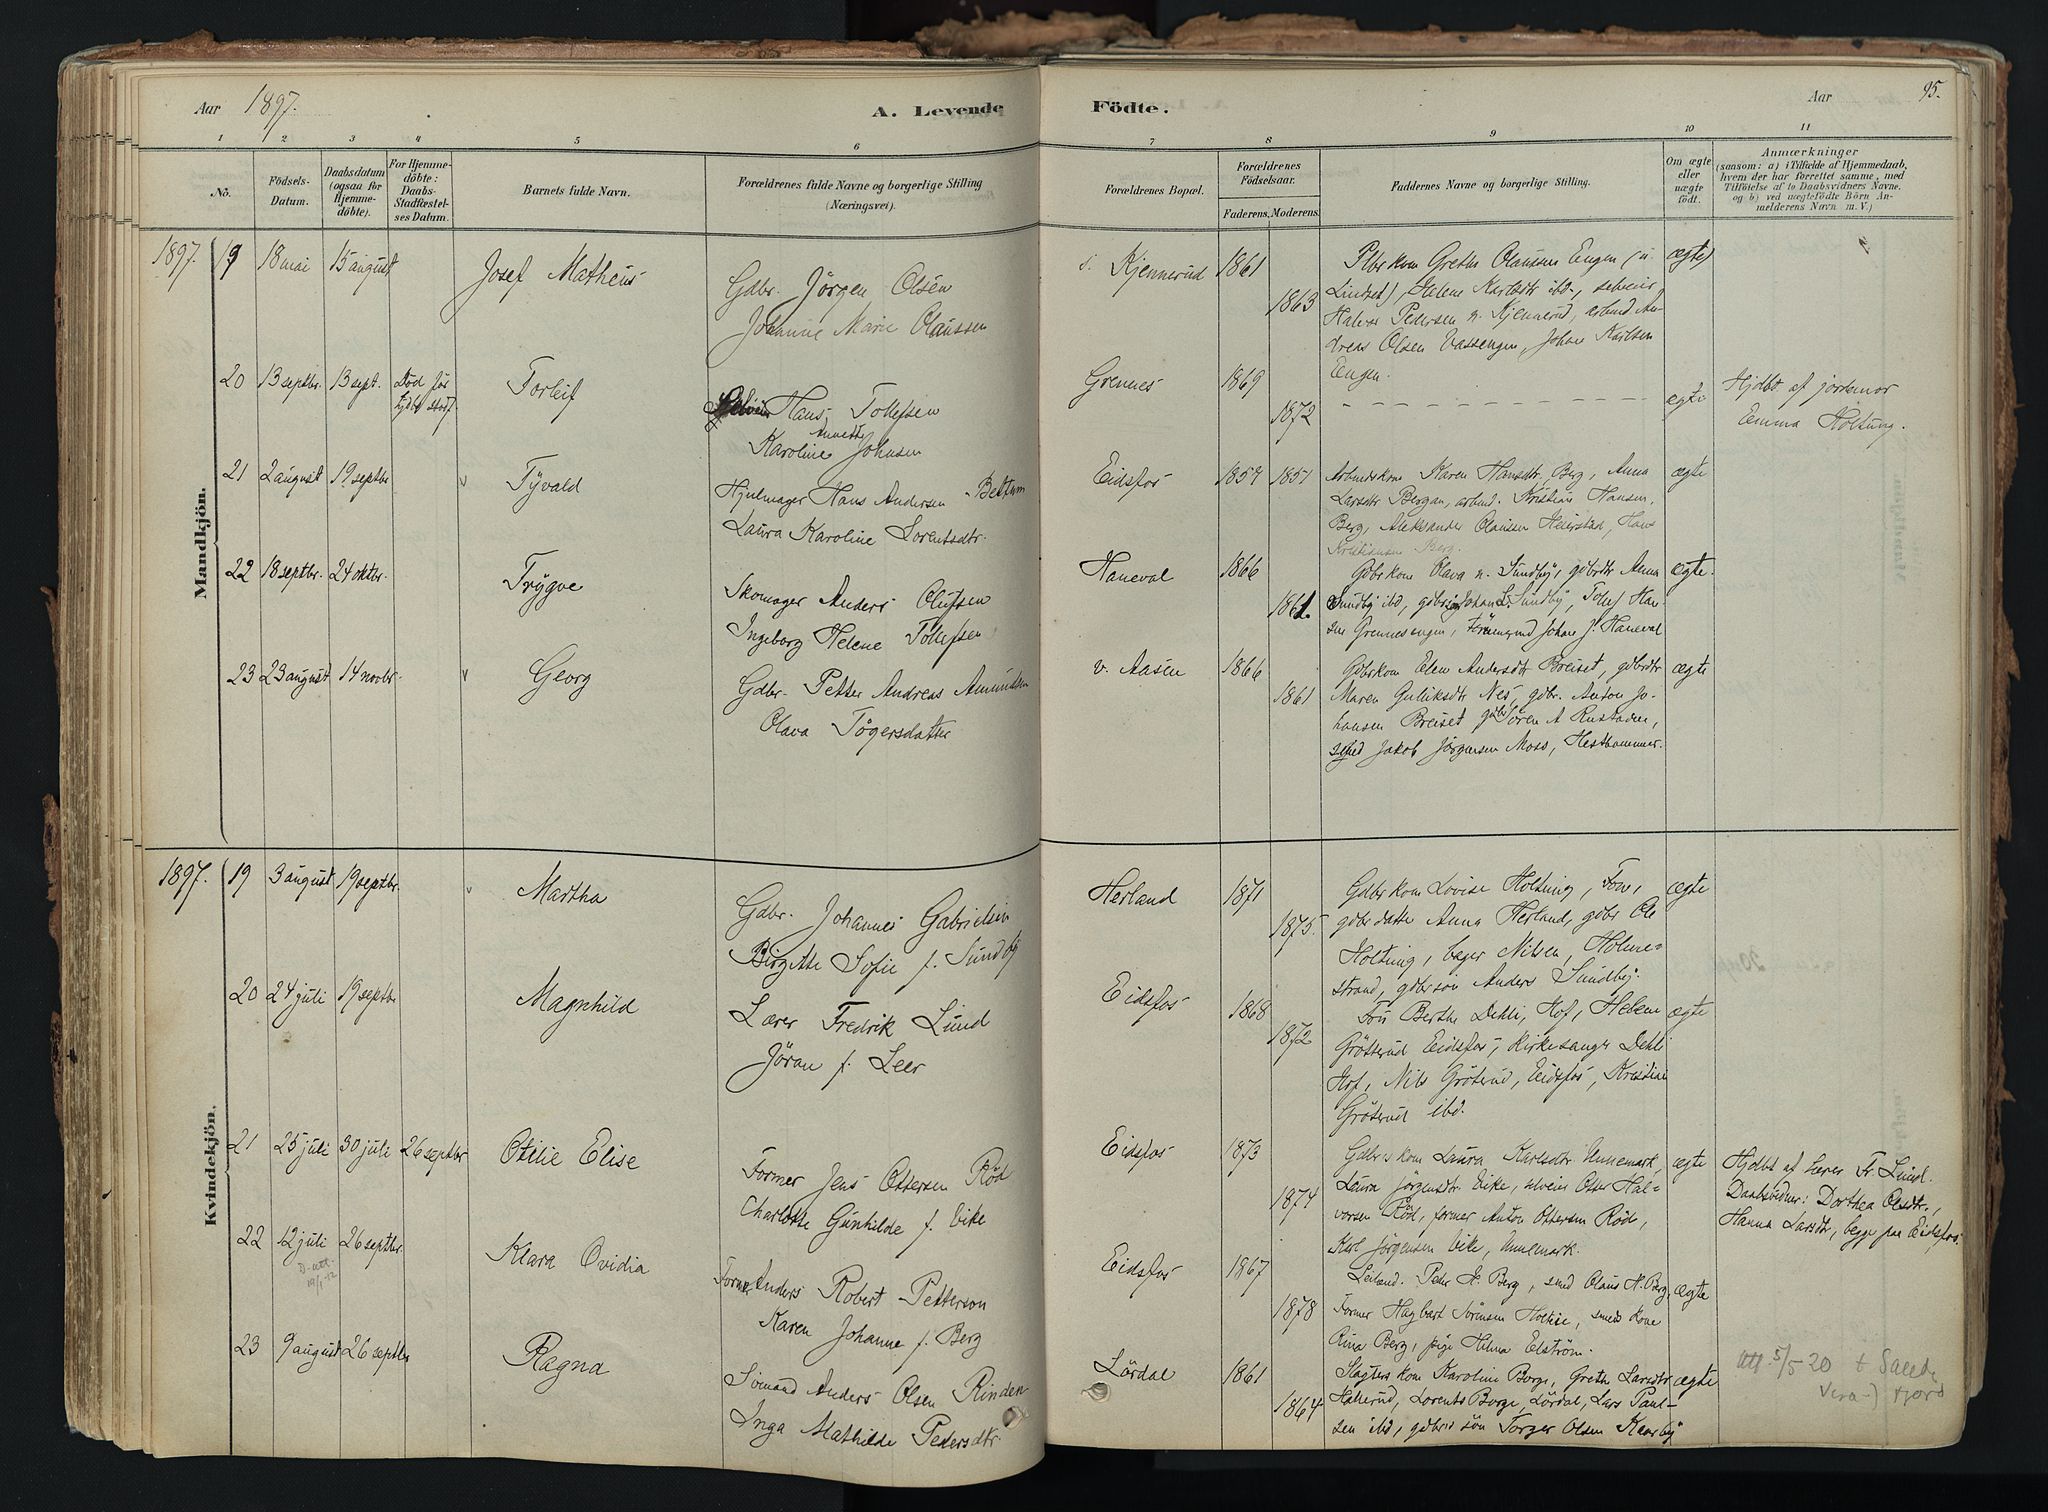 Aar 1897.
A. Levende
Födte.
Aar
95.
1 2 3 4 5 6 7 8 9 10 11
No.
Födsels-
Datum.
Daabsdatum
(ogsaa for
Hjemme-
döbte).
For Hjemme-
döbte:
Daabs-
Stadfæstel-
ses Datum.
Barnets fulde Navn.
Forældrenes fulde Navne og borgerlige Stilling
(Næringsvei).
Forældrenes Bopæl.
Forældrenes
Födselsaar.
Faderens. Moderens.
Faddernes Navne og borgerlige Stilling.
Om ægte
eller
uægte
födt.
Anmærkninger
(saasom: a) i Tilfælde af Hjemmedaab,
hvem der har forrettet samme, med
Tilföielse af to Daabsvidners Navne.
og b) ved uægtefödte Börn An-
melderens Navn m. V.)
Mandkjön.
1897. 19 18 mai 15 august
Josef Matheus
Gdbr. Jörgen Olsen
Johanne Marie Olaussen
s. Kjennerud 1861
1863
Plbrkom Grethe Olaussen Engen (u.
Lindset), Helene Karlsdtr ibd.,
Halvor Pedersen n. Kjennerud, arbmd An-
dreas Olsen Vassengen, Johan Karlsen
Engen.
ægte
20 13 septbr. 13 sept. Död för
Torleif
Hans Tollefsen
Karoline Annette Johnsen
Grennes 1869
1872
ægte
Hjdbt af jordemor
Emma Holtung.
21 2 august 19 septbr
Tyvald
Hjulmager Hans Andersen - Bettum
Laura Karoline Lorentsdtr.
Eidsfos 1857 1857
Arbmdskom Karen Hansdtr, Berg, Anna
Larsdtr Bergan, arbmd. Kristian Hansen,
Berg, Aleksander Olaussen Heierstad, Hans
Kristiansen Berg.
ægte
22 18 septbr. 24 oktbr.
Trygve
Skomager Anders Olufsen
Ingeborg Helene Tollefsen
Haneval 1866
1861.
Gdbrkom Olava n. Sundby, gdbrdtr Anna
Sundby ibd, gdbr Johan L. Sundby, Tollef Han-
sen Grennesengen, Johan J. Haneval
ægte.
23 23 august 14 novbr.
Georg
Gdbr. Petter Andreas Amundsen
Olava Tögersdatter
v. Aasen 1866
1861
Gdbrkom Elen Andersdtr Breiset, gdbrdtr
Maren Guliksdtr Nes, gdbr. Anton Jo-
hansen Breiset gdbr Sören A Rustaden,
smed Jakob Jörgensen Moss, Hesthammer.
ægte
Kvindekjön.
1897. 19 3 august 19 septbr.
Martha
Gdbr. Johannes Gabrielsen
Birgitte Sofie f. Sundby
Herland 1871
1875.
Gdbrkom Lovise Holtung, Fow,
gdbrdatter Anna Herland, gdbr Ole
Holtung, bager Nilsen, Holme-
strand, gdbrsön Anders Sundby.
ægte
20 24 juli 19 septbr
Magnhild
Lærer Fredrik Lund
Jöran f. Leer
Eidsfos 1868
1872
Fru Berthe Dehli, Hof, Helene
Grötterud Eidsfos, Kirkesanger Dehli
Hof, Nils Gröterud, Eidsfos, Kristian
Gröterud ibd.
ægte
21 25 juli 30 juli 26 septbr
Otilie Elise
Former Jens Ottersen Röd
Charlotte Gunhilde f. Vike
Eidsfos 1873
1874
Gdbrskom Laura Karlsdtr Unnemark,
Laura Jörgensdtr Vike, selveier Otter Hal-
vorsen Röd, former Anton Ottersen Röd,
Karl Jörgensen Vike, Unnemark.
ægte
Hjdbt af Lærer Fr. Lund.
Daabsvidner: Dorthea Olsdtr.,
Hanna Larsdtr, begge paa Eidsfos.
22 12 juli 26 septbr.
D. att.
Klara Ovidia
Former Anders Robert Petterson
Karen Johanne f. Berg
Eidsfos 1867
1878
Leiland. Peder H. Berg, smed Olaus H. Berg,
Former Hagbart Sörensen, smeds kone
Berg, pige Helma Elström.
ægte
23 9 august 26 septbr
Ragna
Sömand Anders Olsen Rinden
Inga Mathilde Pedersdtr.
Lördal 1861
1864
Slagters kom Karoline Borge, Grethe Larsdtr
Hallerud, Lorents Borge, Lördal, Lars Paul-
sen ibd, gdbrs sön Torger Olsen Kaarby
ægte
Att. 5/5 20